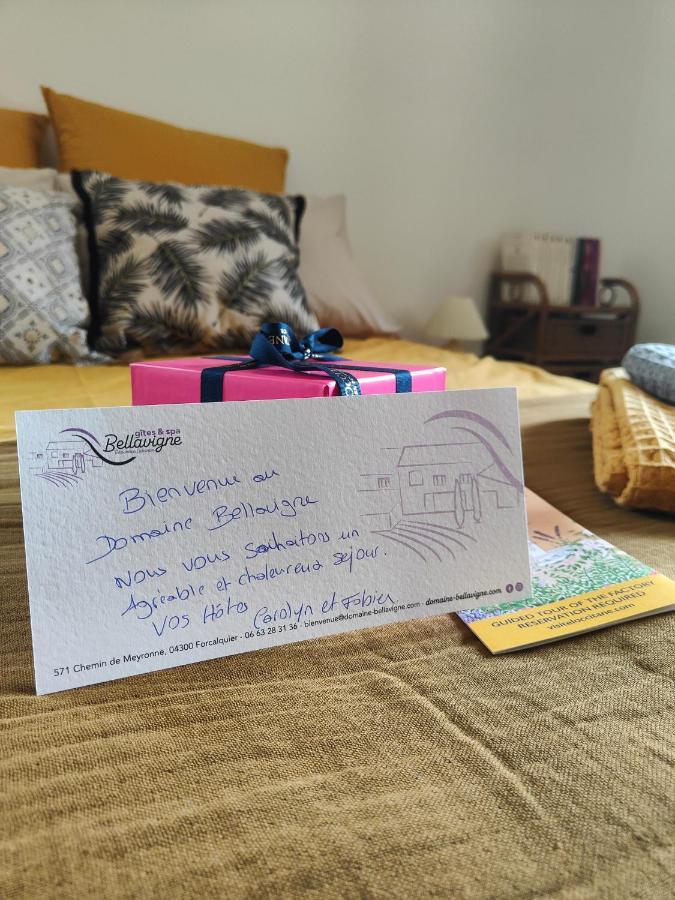 gîtes & spa
Bellavigne
Bienvenue au
Domaine Bellavigne
Nous vous souhaitons un
Agréable et chaleureux séjour.
Vos Hôtes Carolyn et Fabien
571 Chemin de Meyronne, 04300 Forcalquier - 06 63 28 31 36 - bienvenue@domaine-bellavigne.com - domaine-bellavigne.com
GUIDED TOUR OF THE FACTORY
RESERVATION REQUIRED
visiteloccitane.com